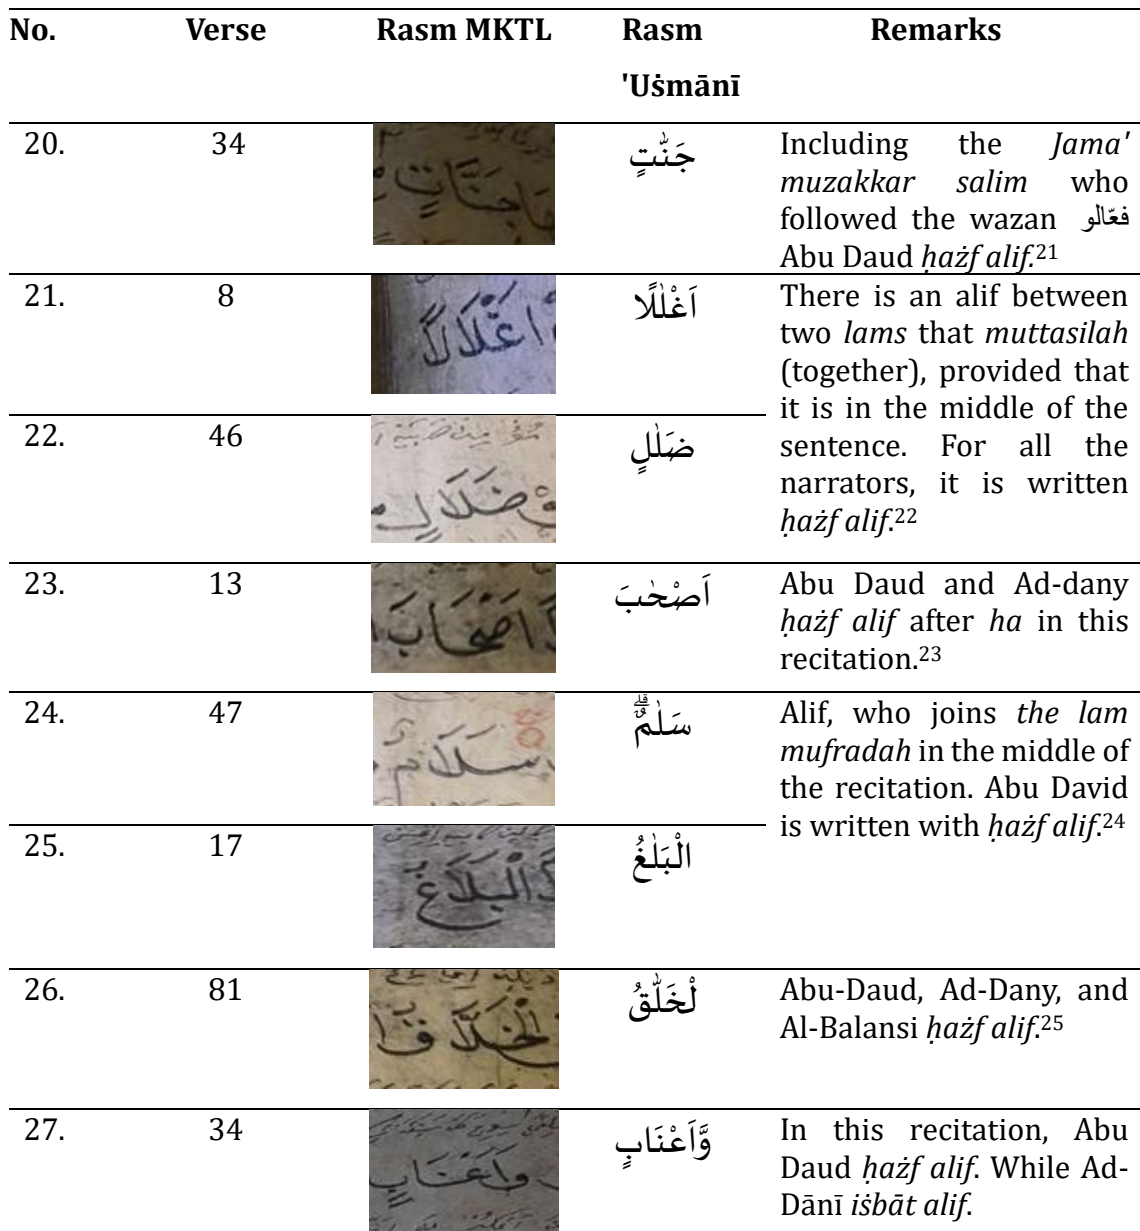 No. Verse Rasm MKTL Rasm Remarks
'Uṡmānī
20. 34 جَنَّاتٍ جَنّٰتٍ Including the Jama'
muzakkar salim who
followed the wazan فعّالو
Abu Daud ḥażf alif.21
21. 8 اَغْلَالًا اَغْلٰلًا There is an alif between
two lams that muttasilah
(together), provided that
it is in the middle of the
22. 46 ضَلَالٍ ضَلٰلٍ sentence. For all the
narrators, it is written
ḥażf alif.22
23. 13 اَصْحَابَ اَصْحٰبَ Abu Daud and Ad-dany
ḥażf alif after ha in this
recitation.23
24. 47 سَلَامٌ سَلٰمٌۗ Alif, who joins the lam
mufradah in the middle of
the recitation. Abu David
is written with ḥażf alif.24
25. 17 الْبَلَاغُ الْبَلٰغُ
26. 81 الْخَلَّاقُ لْخَلّٰقُ Abu-Daud, Ad-Dany, and
Al-Balansi ḥażf alif.25
27. 34 وَاَعْنَابٍ وَّاَعْنَابٍ In this recitation, Abu
Daud ḥażf alif. While Ad-
Dānī iṡbāt alif.